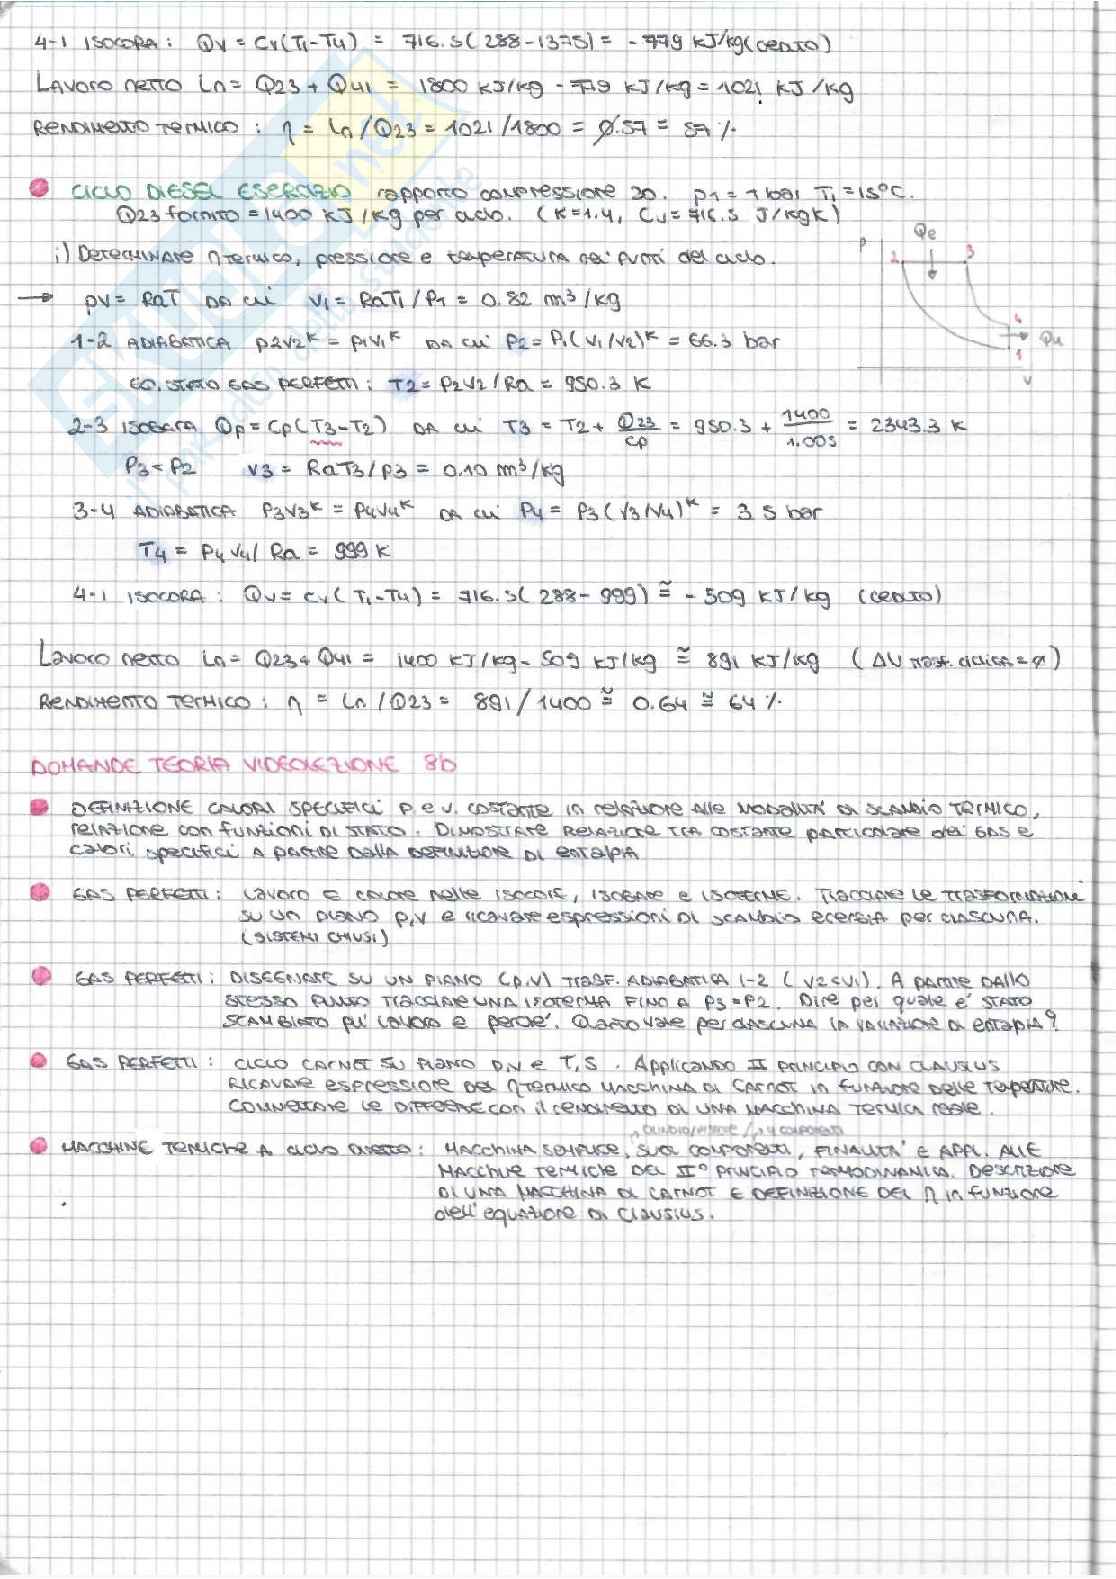 4-1 ISOCORA: Qv = Cv(T1-T4) = 716.5(288-1375) = -779 KJ/kg (ceduto)
LAVORO netto Ln = Q23 + Q41 = 1800 KJ/kg - 779 KJ/kg = 1021 KJ/kg
RENDIMENTO TERMICO: η = Ln/Q23 = 1021/1800 = 0.57 = 57 %
CICLO DIESEL ESERCIZIO rapporto compressione 20. p1 = 1 bar T1 = 15°C.
Q23 fornito = 1400 KJ/Kg per ciclo. (K=1.4, Cv=716.5 J/kgK)
i) Determinare ηtermico, pressione e temperatura nei punti del ciclo.
P Qe
2 3
4 Qu
1
V
→ pv = RaT DA cui v1 = RaT1/P1 = 0.82 m³/kg
1-2 ADIABATICA p2v2ᴷ = p1v1ᴷ DA cui P2 = P1(V1/V2)ᴷ = 66.3 bar
EQ. STATO GAS PERFETTI: T2 = P2V2/Ra = 950.3 K
2-3 ISOBARA Qp = Cp(T3-T2) DA cui T3 = T2 + Q23/Cp = 950.3 + 1400/1.005 = 2343.3 K
P3 = P2 V3 = RaT3/p3 = 0.10 m³/kg
3-4 ADIABATICA P3V3ᴷ = P4V4ᴷ DA cui P4 = P3(V3/V4)ᴷ = 3.5 bar
T4 = P4V4/Ra = 999 K
4-1 ISOCORA: Qv = cv(T1-T4) = 716.5(288-999) ≅ -509 KJ/kg (ceduto)
Lavoro netto Ln = Q23+Q41 = 1400 KJ/kg - 509 KJ/kg ≅ 891 KJ/kg (ΔU trasf. ciclica = ∅)
RENDIMENTO TERMICO: η = Ln/Q23 = 891/1400 ≅ 0.64 ≅ 64 %
DOMANDE TEORIA VIDEOLEZIONE 8b
DEFINIZIONE CALORI SPECIFICI P e V. COSTANTE in relazione alle modalità di SCAMBIO TERMICO,
relazione con funzioni di STATO. DIMOSTRARE RELAZIONE TRA COSTANTE particolare dei GAS e
calori specifici A PARTIRE DALLA DEFINIZIONE DI entalpia
GAS PERFETTI: Lavoro e calore nelle ISOCORE, ISOBARE e ISOTERME. Tracciare le TRASFORMAZIONI
SU UN PIANO P,V e ricavare espressioni DI SCAMBIO ENERGIA per CIASCUNA.
(SISTEMI CHIUSI)
GAS PERFETTI: DISEGNARE SU UN PIANO (P,V) TRASF. ADIABATICA 1-2 (V2<V1). A partire DALLO
STESSO PUNTO TRACCIARE UNA ISOTERMA FINO A P3=P2. Dire per quale è STATO
SCAMBIATO più LAVORO e perché. Quanto vale per ciascuna la VARIAZIONE DI entalpia?
GAS PERFETTI: CICLO CARNOT SU PIANO P,V e T,S. Applicando II PRINCIPIO CON CLAUSIUS
RICAVARE espressione del ηtermico MACCHINA DI CARNOT in funzione delle temperature.
COMMENTARE LE DIFFERENZE con il rendimento DI UNA MACCHINA TERMICA reale.
MACCHINE TERMICHE A CICLO DIRETTO: MACCHINA SEMPLICE, SUOI COMPONENTI, FINALITÀ E APPL. ALLE
MACCHINE TERMICHE DEL II° PRINCIPIO TERMODINAMICA. DESCRIZIONE
DI UNA MACCHINA DI CARNOT E DEFINIZIONE DEL η in funzione
dell'equazione DI CLAUSIUS.